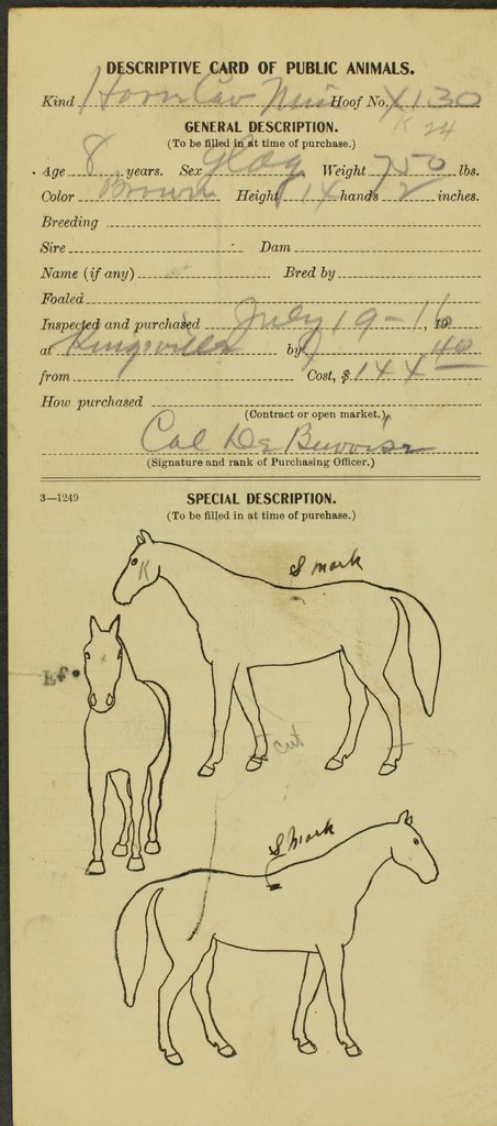 DESCRIPTIVE CARD OF PUBLIC ANIMALS.
Kind Horse Cav Hoof No. X130
K 24
GENERAL DESCRIPTION.
(To be filled in at time of purchase.)
Age 8 years. Sex Weight 750 lbs.
Color Brown Height 14 hands 2 inches.
Breeding
Sire Dam
Name (if any) Bred by
Foaled
Inspected and purchased July 19-16, 19
at Kingsville by
from Cost, $ 144 40
How purchased
(Contract or open market.)
Cal De
(Signature and rank of Purchasing Officer.)
3—1249
SPECIAL DESCRIPTION.
(To be filled in at time of purchase.)
S mark
K
cut
S Mark